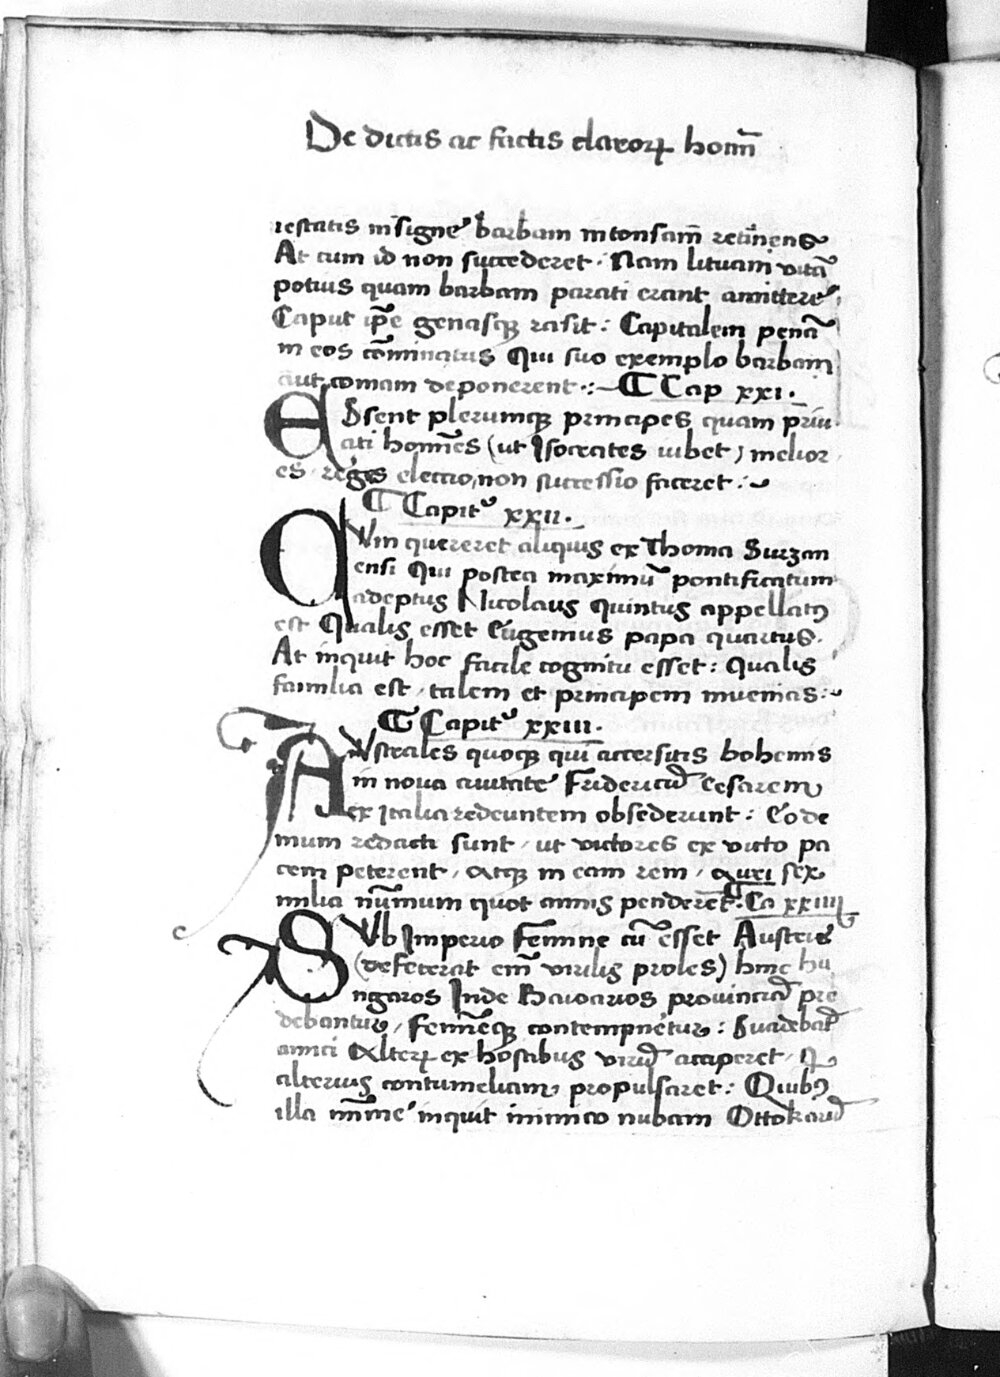 De dictis ac factis claroꝝ homı̄
iestatis insigne barbam intonsam̄ retinens
At cum id non succederet · Nam lituani vitā
potius quam barbam parati erant amittere
Caput ip̄e genasqꝫ rasit : Capitalem penā
in eos cōminatus Qui suo exemplo barbam
aut comam deponerent ·:~ ¶ Cap xxi ·
ESsent plerumqꝫ principes quam priu
ati homīes (ut Isocrates iubet) melior
es · reges electio, non successio faceret :~
¶ Capitꝰ xxii ·
QVin quereret aliquis ex Thoma Surzan
ensi Qui postea maximū pontificatum
adeptus Nicolaus quintus appellatꝰ
est Qualis esset Eugenius papa quartus ·
At inquit hoc facile cognitu esset : Qualis
familia est, talem et principem inuenias :~
¶ Capitꝰ xxiii ·
AVstrales quoqꝫ qui accersitis bohemis
in noua ciuitate Fridericū Cesarem
ex Italia redeuntem obsederunt : Eo de
mum redacti sunt, ut victores ex victo pa
cem peterent, atqꝫ in eam rem, auri sex
milia nūmum quot annis penderēt : ¶ Ca xxiiii
SVb Imperio Femine cū esset Austria
(defecerat em̄ virilis proles) hinc hu
ngaros Inde Baioarios prouinciā pre
debantur, Femīeqꝫ contempnētur : Suadebāt
amici Alteꝝ ex hostibus virū acciperet, q̄
alterius contumeliam propulsaret : Quibꝰ
illa mīme inquit inimico nubam Ottokarū